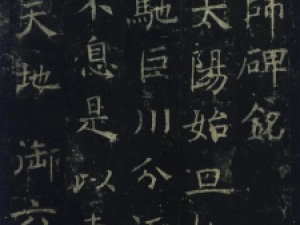 師碑銘
太陽始旦
馳巨川分
不息是以
天地御六